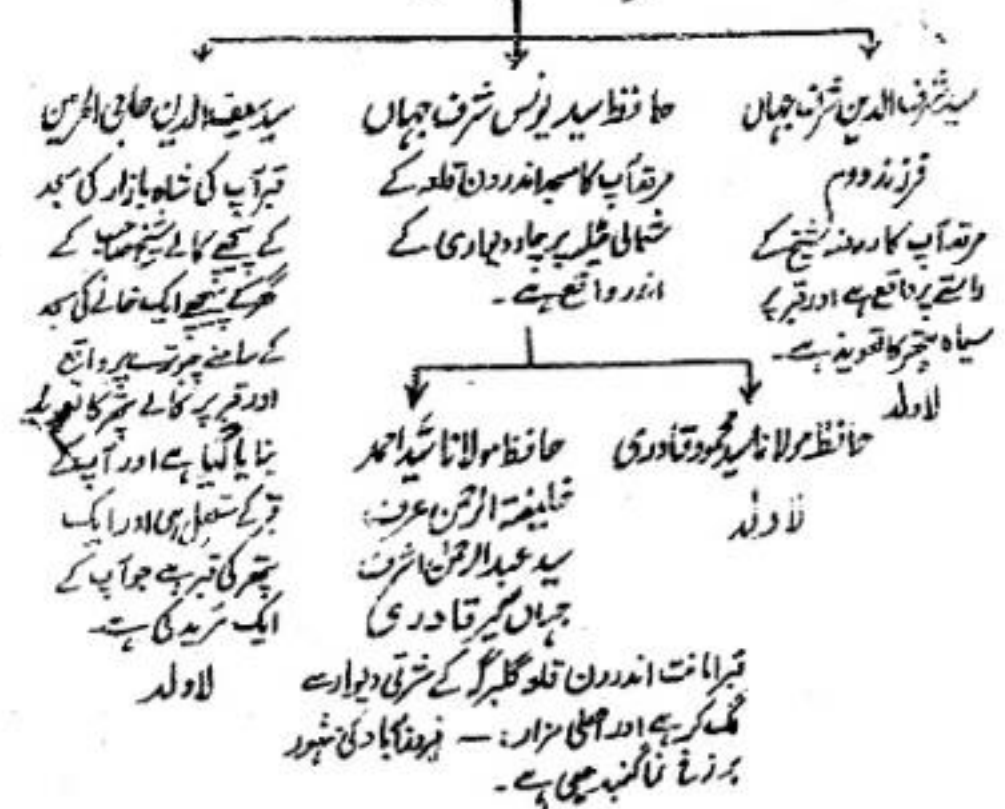 سید شرف الدین شرف جہاں
فرزند دوم
مرقد آپ کا روضہ شیخ کے
راستے پر واقع ہے اور قبر پر
سیاہ پتھر کا تعویذ ہے۔
لاولد
حافظ سید یونس شرف جہاں
مرقد آپ کا مسجد اندرون قلعہ کے
شمالی ٹیلہ پر چار دیواری کے
اندر واقع ہے۔
سید الدین حاجی الحرمین
قبر آپ کی شاہ بازار کی مسجد
کے پیچھے کالے شیخ صاحب کے
گھر کے پیچھے ایک خانے کی مسجد
کے سامنے چبوترے پر واقع
اور قبر پر کالے پتھر کا تعویذ
بنایا گیا ہے اور آپ کے
قبر کے متصل ہی اور ایک
پتھر کی قبر ہے جو آپ کے
ایک مرید کی ہے
لاولد
حافظ مولانا سید محمود قادری
لاولد
حافظ مولانا سید احمد
خلیفتہ الرحمن عرف
سید عبدالرحمن اشرف
جہاں گیر قادری
قبر امانت اندرون قلعہ گلبرگہ کے شرقی دیوار سے
لگ کر ہے اور اصلی مزار :— فیروزآباد کی مشہور
برزخ نما گنبد میں ہے۔